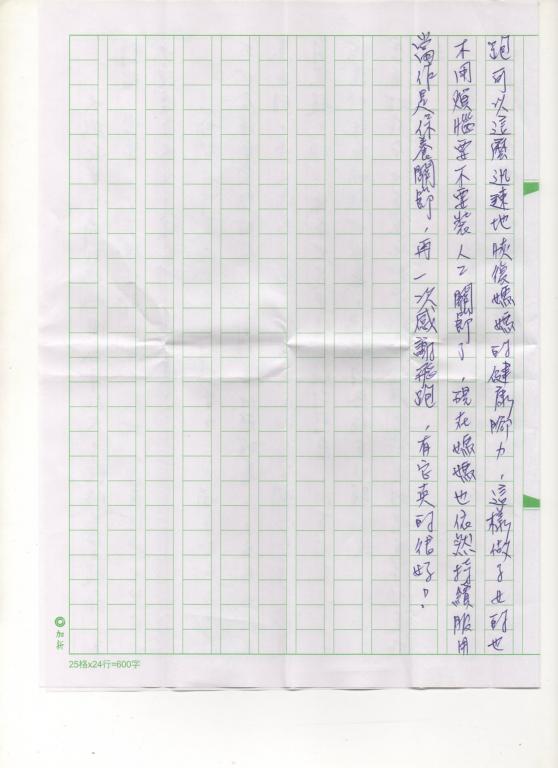 跑可以這麼迅速地恢復媽媽的健康腳力，這樣做子女的也
不用煩惱要不要裝人工關節了，現在媽媽也依然持續服用
當作是保養關節，再一次感謝飛跑，有它真的很好！
加新
25格x24行=600字